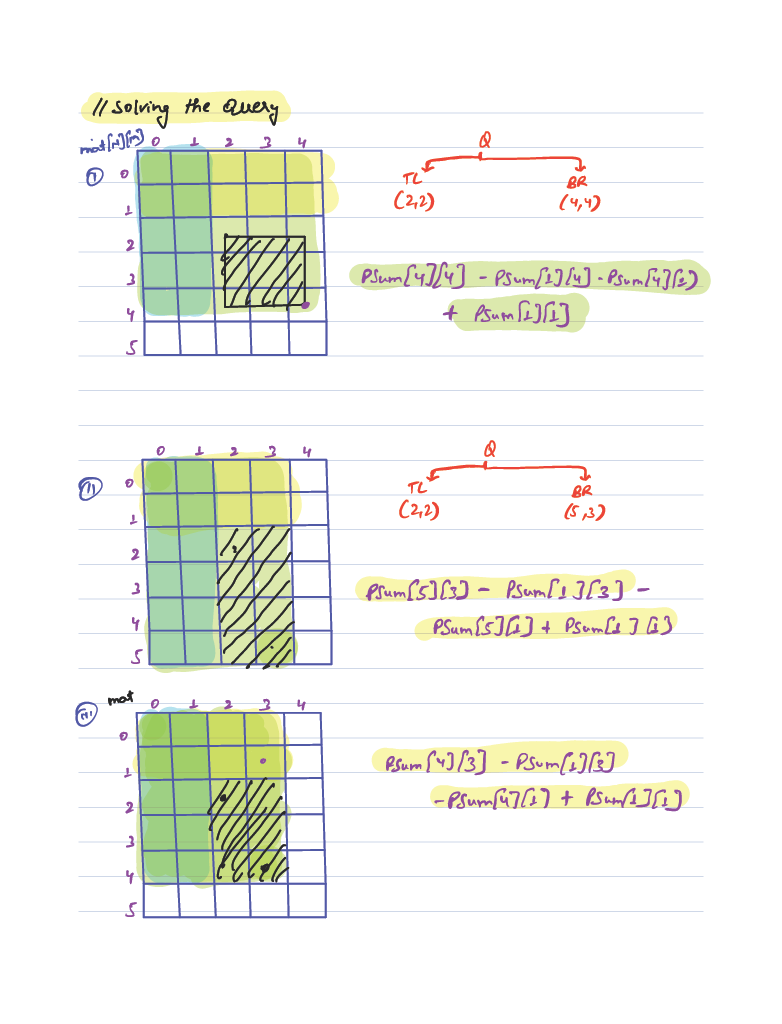 // Solving the Query
mat[N][M] 0 1 2 3 4
I
0
1
2
3
4
5
Q
TL BR
(2,2) (4,4)
PSum[4][4] - PSum[1][4] - PSum[4][1]
+ PSum[1][1]
0 1 2 3 4
II
0
1
2
3
4
5
Q
TL BR
(2,2) (5,3)
PSum[5][3] - PSum[1][3] -
PSum[5][1] + PSum[1][1]
mat
III
0 1 2 3 4
0
1
2
3
4
5
PSum[4][3] - PSum[1][3]
- PSum[4][1] + PSum[1][1]